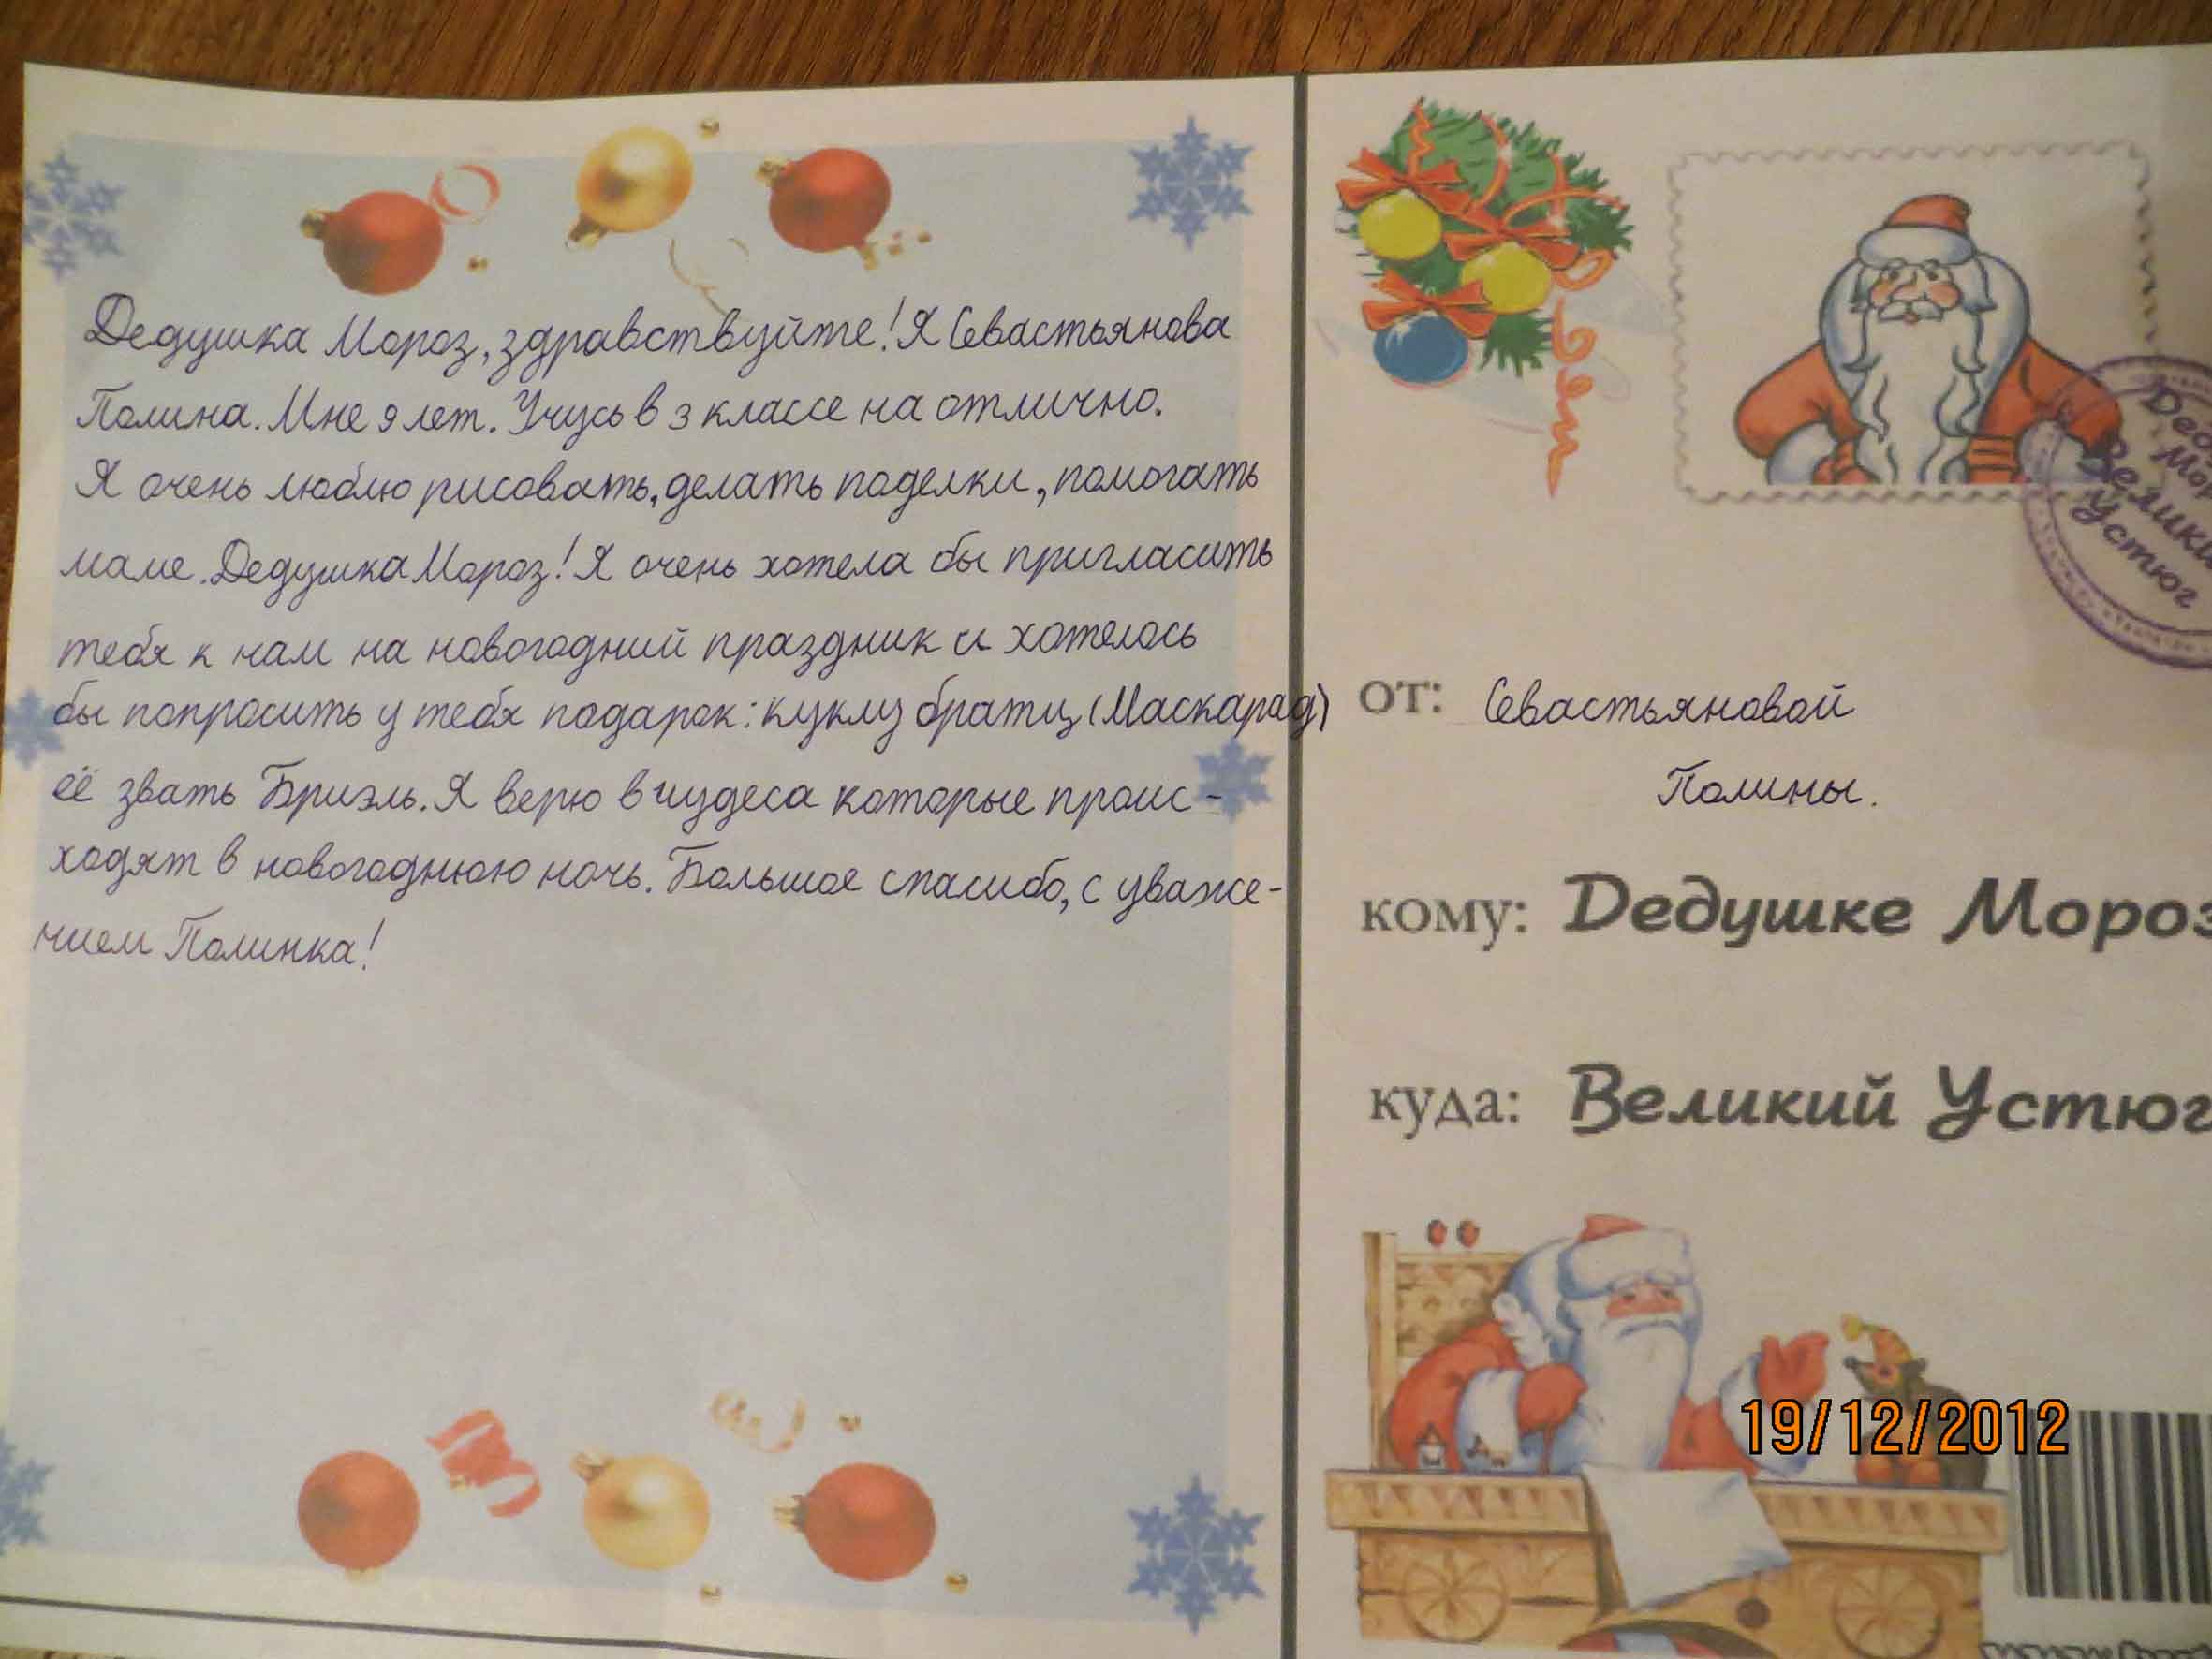 Дедушка Мороз, здравствуйте! Я Севастьянова
Полина. Мне 9 лет. Учусь в 3 классе на отлично.
Я очень люблю рисовать, делать поделки, помогать
маме. Дедушка Мороз! Я очень хотела бы пригласить
тебя к нам на новогодний праздник и хотелось
бы попросить у тебя подарок: куклу братц (Маскарад)
её звать Бриэль. Я верю в чудеса которые проис-
ходят в новогоднюю ночь. Большое спасибо, с уваже-
нием Полинка!
Великий
Устюг
от: Севастьяновой
Полины.
кому: Дедушке Мороз
куда: Великий Устюг
19/12/2012